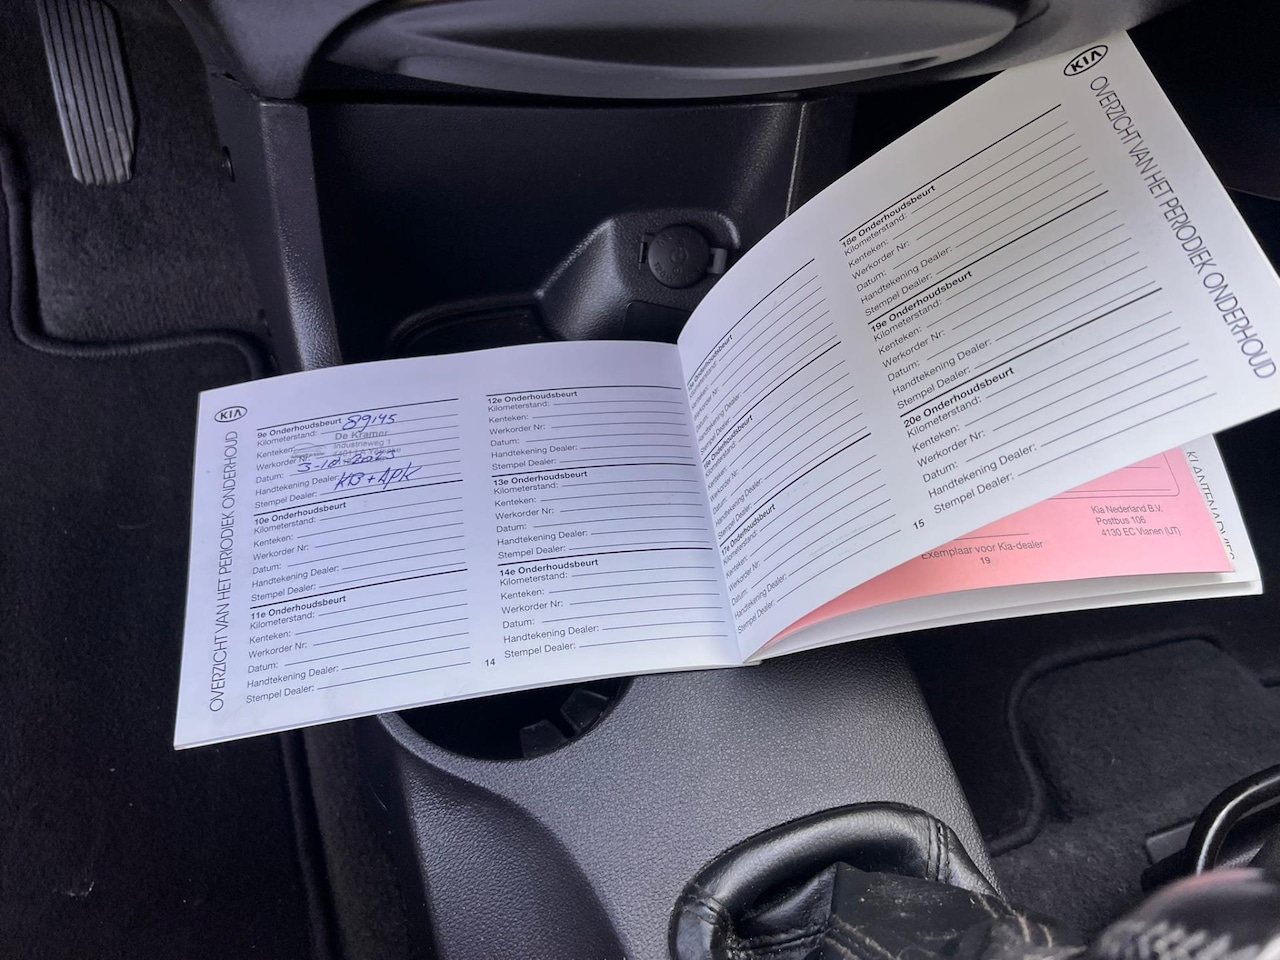 KIA
OVERZICHT VAN HET PERIODIEK ONDERHOUD
9e Onderhoudsbeurt
Kilometerstand: 89145
Kenteken:
De Kramer
Industrieweg 1
Werkorder Nr:
Datum: 3-10-
Handtekening Dealer:
Stempel Dealer: + APK
10e Onderhoudsbeurt
Kilometerstand:
Kenteken:
Werkorder Nr:
Datum:
Handtekening Dealer:
Stempel Dealer:
11e Onderhoudsbeurt
Kilometerstand:
Kenteken:
Werkorder Nr:
Datum:
Handtekening Dealer:
Stempel Dealer:
12e Onderhoudsbeurt
Kilometerstand:
Kenteken:
Werkorder Nr:
Datum:
Handtekening Dealer:
Stempel Dealer:
13e Onderhoudsbeurt
Kilometerstand:
Kenteken:
Werkorder Nr:
Datum:
Handtekening Dealer:
Stempel Dealer:
14e Onderhoudsbeurt
Kilometerstand:
Kenteken:
Werkorder Nr:
Datum:
Handtekening Dealer:
Stempel Dealer:
14
Onderhoudsbeurt
Kilometerstand:
Kenteken:
Werkorder Nr:
Datum:
Handtekening Dealer:
Stempel Dealer:
Onderhoudsbeurt
Kilometerstand:
Kenteken:
Werkorder Nr:
Datum:
Handtekening Dealer:
Stempel Dealer:
17e Onderhoudsbeurt
Kilometerstand:
Kenteken:
Werkorder Nr:
Datum:
Handtekening Dealer:
Stempel Dealer:
18e Onderhoudsbeurt
Kilometerstand:
Kenteken:
Werkorder Nr:
Datum:
Handtekening Dealer:
Stempel Dealer:
19e Onderhoudsbeurt
Kilometerstand:
Kenteken:
Werkorder Nr:
Datum:
Handtekening Dealer:
Stempel Dealer:
20e Onderhoudsbeurt
Kilometerstand:
Kenteken:
Werkorder Nr:
Datum:
Handtekening Dealer:
Stempel Dealer:
15
KIA
OVERZICHT VAN HET PERIODIEK ONDERHOUD
Kia Nederland B.V.
Postbus 106
4130 EC Vianen (UT)
Exemplaar voor Kia-dealer
19
KLANTENADVIES